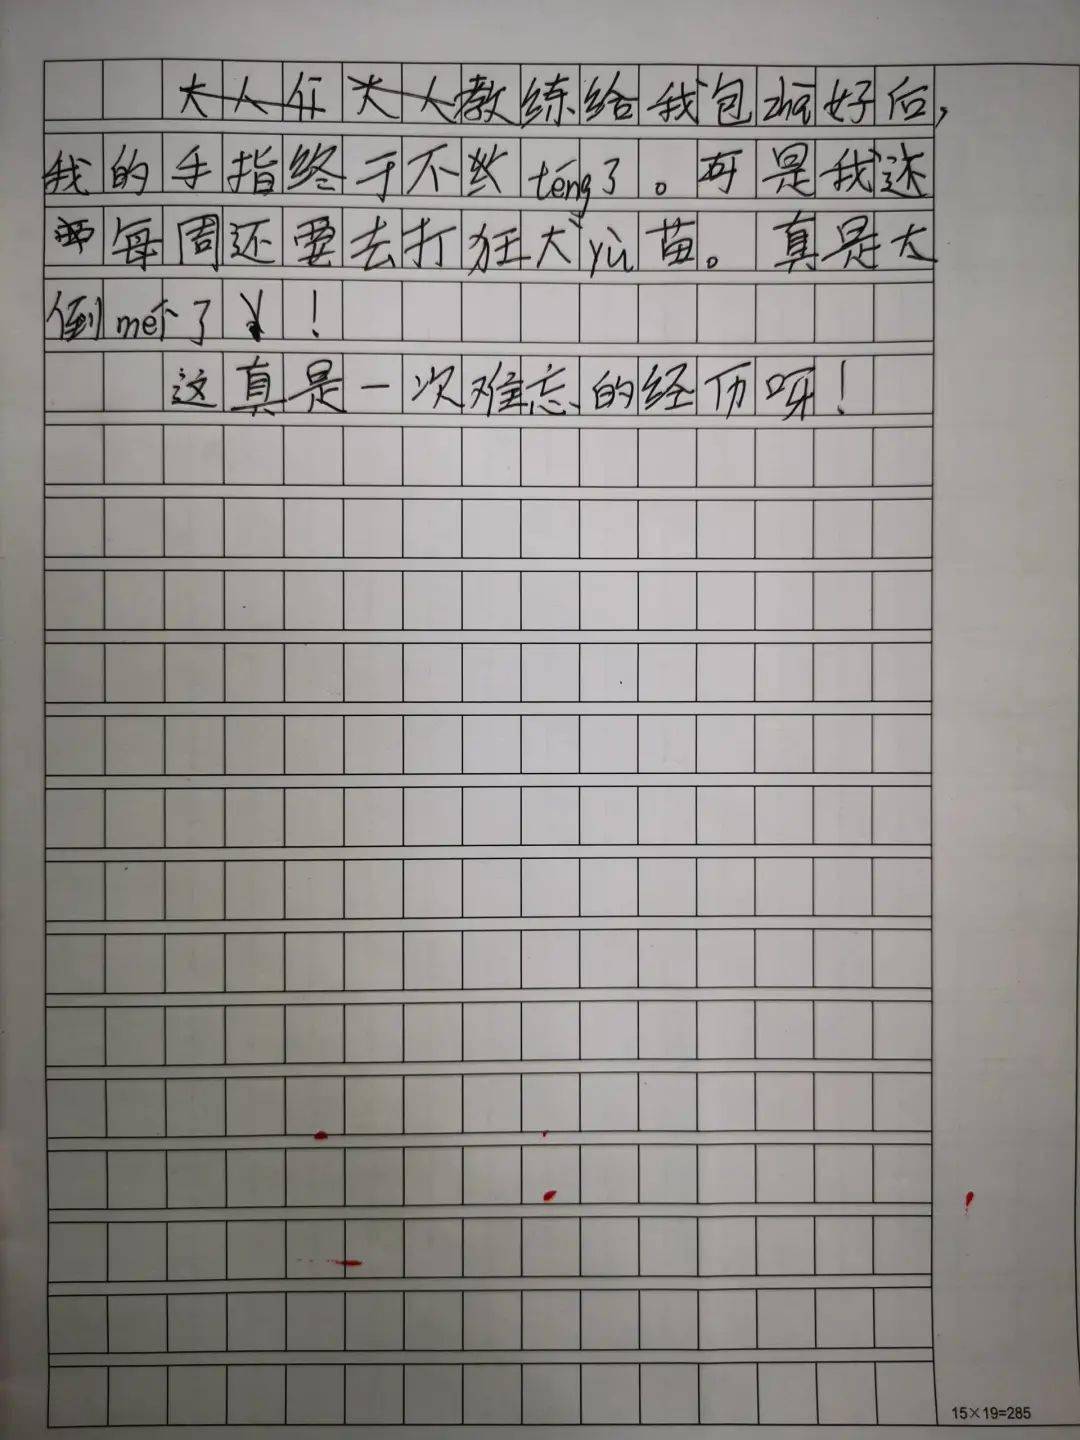 大人们大人教练给我包zhā好后，
我的手指终于不 téng了。可是我还
每周还要去打狂犬yù苗。真是太
倒méi了！
这真是一次难忘的经历呀！
15×19=285